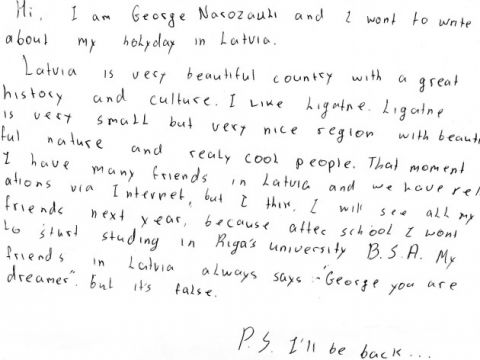 Hi, I am George Narozauli and I wont to write
about my holyday in Latvia.
Latvia is very beautiful country with a great
history and culture. I Like Ligatne. Ligatne
is very small but very nice region with beauti
ful nature and realy cool people. That moment
I have many friends in Latvia and we have rel
ations via Internet, but I thin, I will see all my
friends next year, because after school I wont
to sturt studing in Riga's university B.S.A. My
friends in Latvia always says -"George you are
dreamer". but it's false.
P.S. I'll be back...